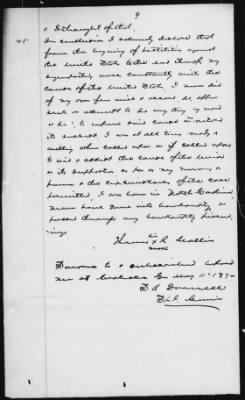 9
& I thought of that
45 In conclusion I solemnly declare that
from the beginning of hostilities against
the United States to the end thereof my
sympathies were constantly with the
cause of the United States, I never did
of my own free will & accord, do, offer
seek or attempt to do any thing by word
or deed to injure said cause or retard
its success, I was at all times ready &
willing when called upon or if called upon
to aid & assist the cause of the Union
or its supporters so far as my means &
power & the circumstances of the case
permitted, I was born in North Carolina
never have gone into bankruptcy or
passed through any bankruptcy proceed-
ings
Thomas his R
mark
Sworn to & subscribed before
me at Ga May 11th 1874